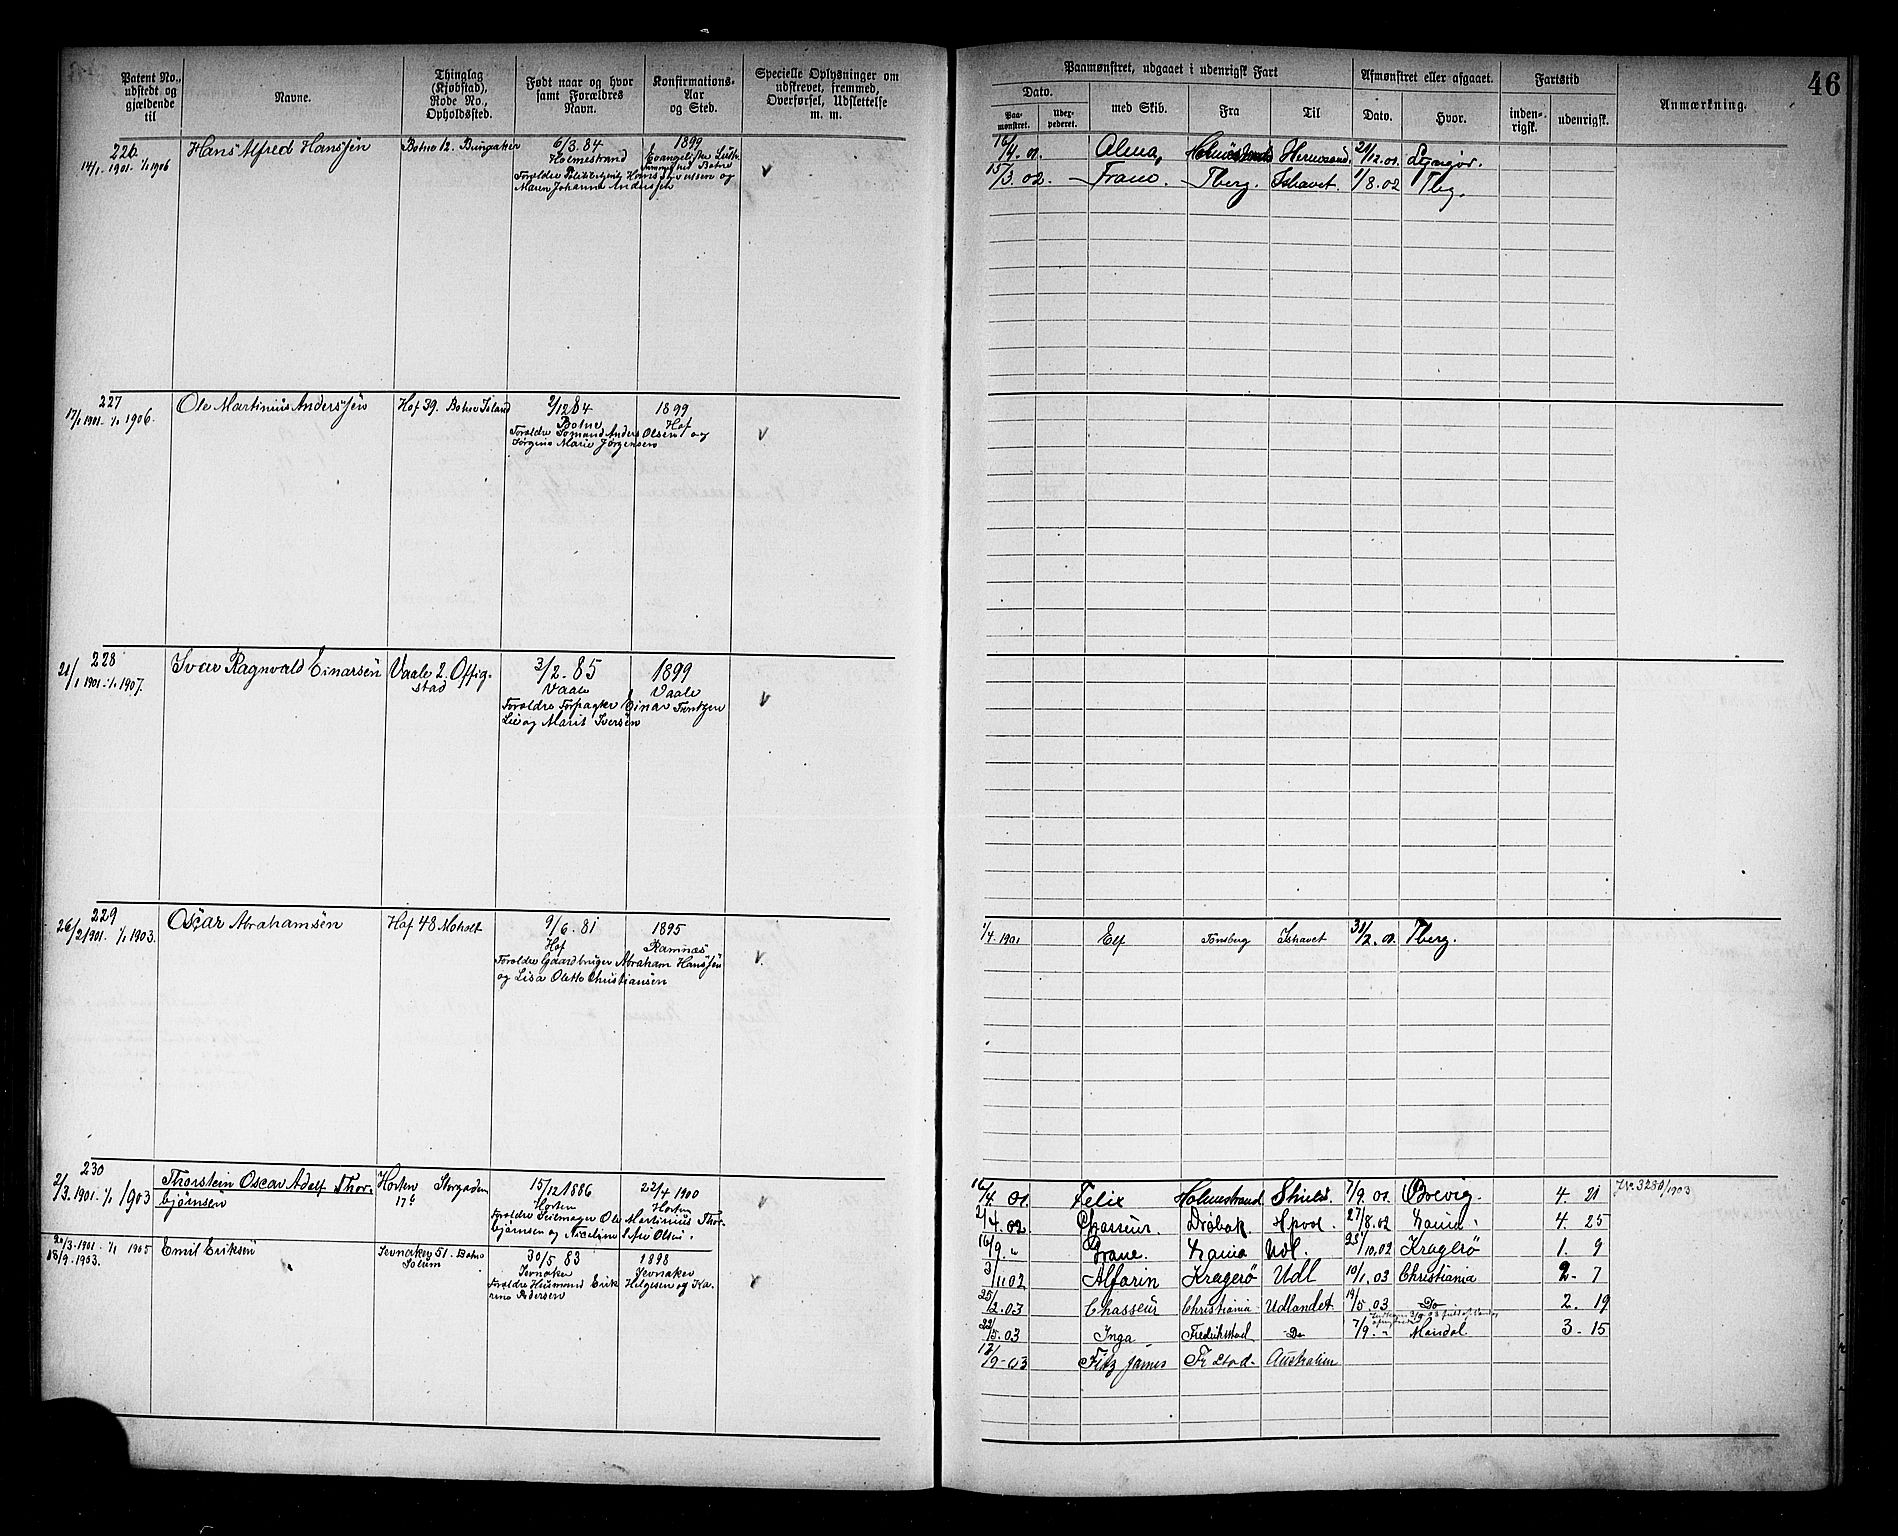 46
Patent No., udstedt og gjældende til
Navne.
Thinglag (Kjøbstad), Rode No., Opholdssted.
Født naar og hvor samt Forældres Navn.
Konfirmations-Aar og Sted.
Specielle Oplysninger om udstrevet, fremmed, Overførsel, Udslettelse m. m.
Paamønstret, udgaaet i udenrigsk Fart
Dato.
Paa-mønstret.
med Skib.
Fra
Til
Afmønstret eller afgaaet.
Dato.
Hvor.
Fartstid
inden-rigsk.
udenrigsk.
Anmærkning.
226
14/1 1901 - 1/1 1906
Hans Alfred Hanssen
Botne 12.
6/3. 84
Holmestrand
1899
Botne
Maren Johanne Andersen
v
16/4. 01. Alma, Holmestrand Hernosand. 21/12. 01. Lyngør.
15/3. 02. Tberg. Ishavet. 1/8. 02 Tbg.
227
17/1 1901 - 1/1 1906.
Ole Martinius Anderssen
Hof 39. Botne
2/12 84
Botne
1899
Hof
Forældre Sømand Anders Olsen og
Jørgine Marie Jørgensen
v
228
21/1 1901 - 1/1 1907.
Ivar Ragnvald Einarsen
Vaale 2. Offig-
stad
3/2 - 85
Vaale
1899
Vaale
Forældre Forpagter Einar
Lie og Marit Iversen
v
229
26/2 1901. 1/1 1903.
Oscar Abrahamsen
Hof 48 Moholt
9/6. 81
Hof
1895
Ramnæs
Forældre Gaardbruger Abraham Hanssen
og Lisa Olette Christiansen
v.
1/4. 1901 Elf Tønsberg Ishavet 31/12. 01. Tberg.
230
2/3. 1901. 1/1 1903
Thorstein Oscar Adolf Thor-
bjørnsen
Horten Storgaden
17 b
15/12 1886
Horten
22/4 1900
Horten
Forældre Seilmager Ole Martinius Thor-
bjørnsen og Nicoline Sofie Olsen.
v
16/4. 01. Felix Holmestrand Shields 7/9. 01. Brevig. 4. 21
2/4. 02 Chasseur. Drøbak 27/8. 02 4. 25
20/3 - 1901 - 1/1 1905
18/9 - 1903.
Emil Eriksen
Jevnaker 51. Botne
Solum
30/5 83
Jevnaker
1898
Jevnaker
Forældre Husmand Erik Helgesen og Ka-
rine Pedersen
v
16/9. " Udl. 25/10. 02 Kragerø 1. 9
3/11 02 Alfarin Kragerø Udl 10/1. 03 Christiania 2 - 7
25/2. 03 Chasseur Christiania Udlandet 19/5. 03 Do 2. 19
22/5. 03 Inga Fredrikstad Do 7/9. " Mandal 3 - 15
17/9 - 03 Fitz James Fr. stad - Australien